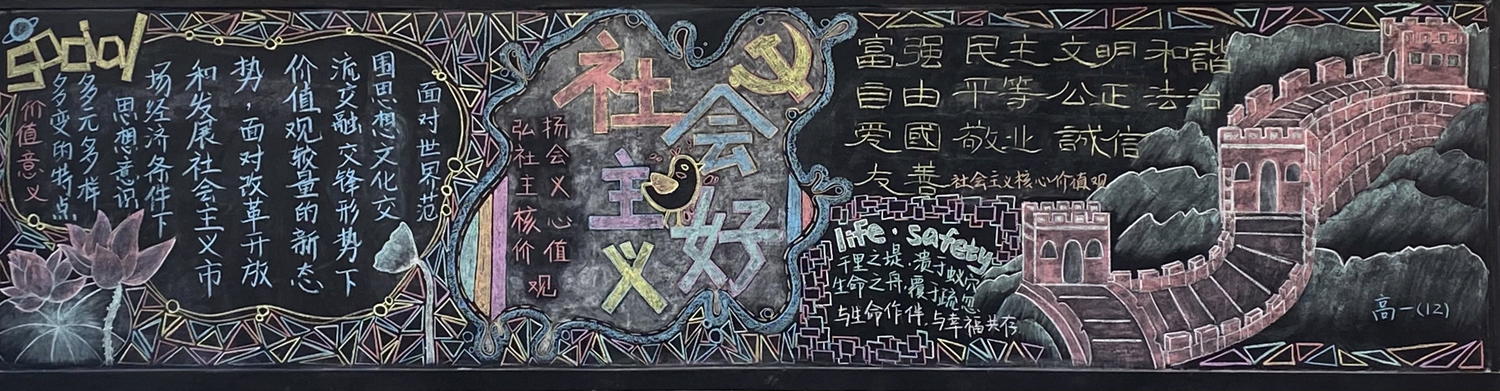 social
价值意义
面对世界范
围思想文化交
流交融交锋形势下
价值观较量的新态
势，面对改革开放
和发展社会主义市
场经济条件下
思想意识
多元多样
多变的特点
社会
主义好
弘扬
社会
主义
核心
价值
观
富强 民主 文明 和諧
自由 平等 公正 法治
爱國 敬业 誠信
友善
社会主义核心价值观
life·safety
千里之堤,溃于蚁穴
生命之舟,覆于疏忽
与生命作伴,与幸福共存
高一(12)